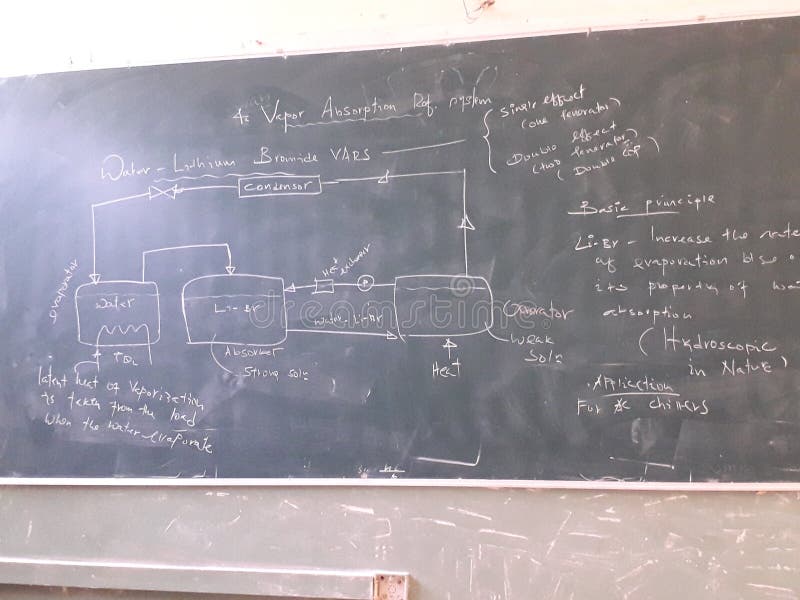 4: Vapor Absorption Ref. system
Single effect
(one
Double effect
(two
(Double
Water - Lithium Bromide VARS
Condensor
evaporator
Water
Li-Br
Heat
P
Water Li-Br
Absorber
Strong solⁿ
Heat
Weak
Solⁿ
QL
latent heat of Vaporization
is taken from the load
when the water evaporate
Basic principle
Li-Br - Increase the rate
of evaporation
its property of
absorption
(Hydroscopic
in Nature)
Application
For chillers
dreamstime